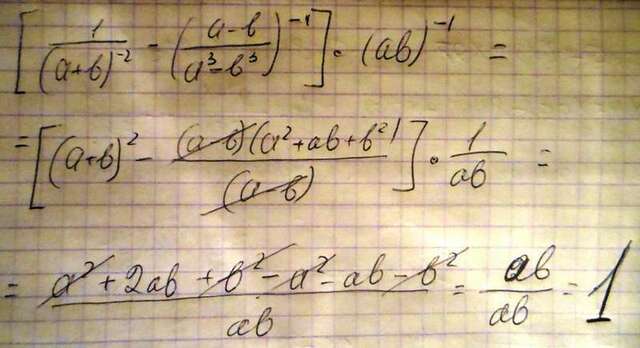 [1/(a+b)^-2 - ((a-b)/(a³-b³))^-1] · (ab)^-1 =
= [(a+b)² - (a-b)(a²+ab+b²)/(a-b)] · 1/ab =
= (a²+2ab+b²-a²-ab-b²)/ab = ab/ab = 1